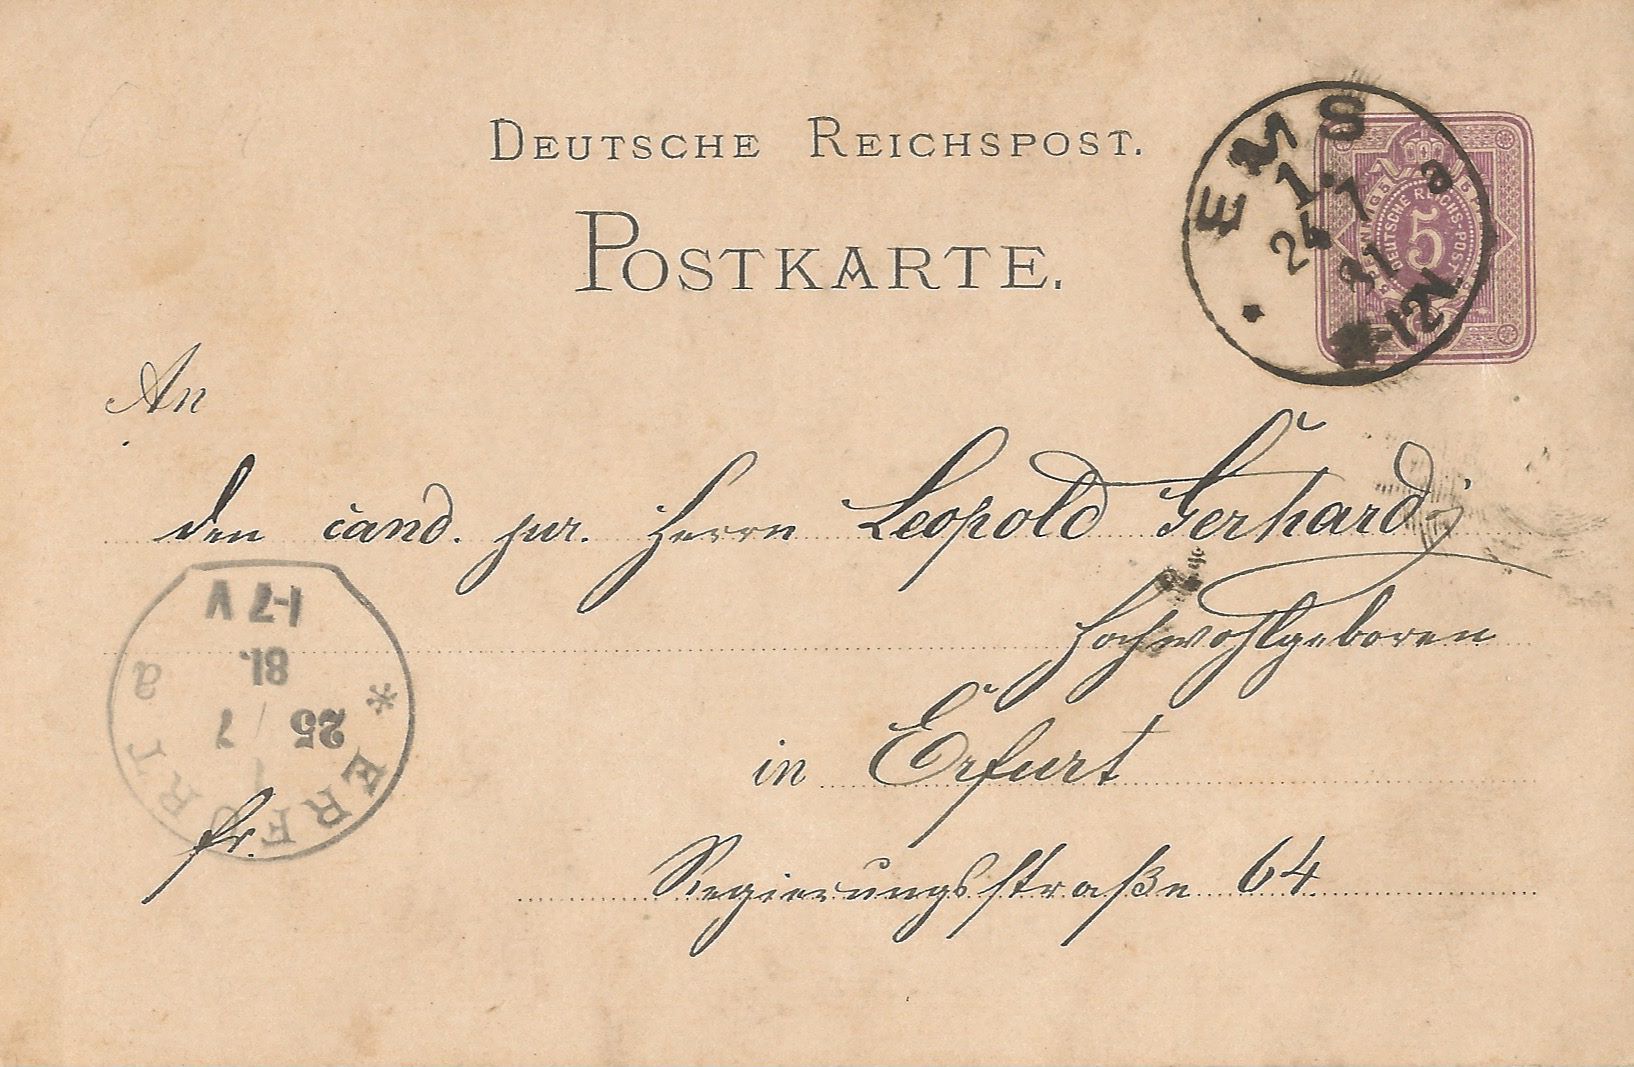 DEUTSCHE REICHSPOST.
POSTKARTE.
EMS
1.
7 a
81
-12N.
DEUTSCHE REICHS-POST
5
An
den cand. jur. Herrn Leopold Gerhard
Hochwohlgeboren
in Erfurt
Regierungsstraße 64
fr.
* ERFURT a
1
25 / 7
81.
1-7 V